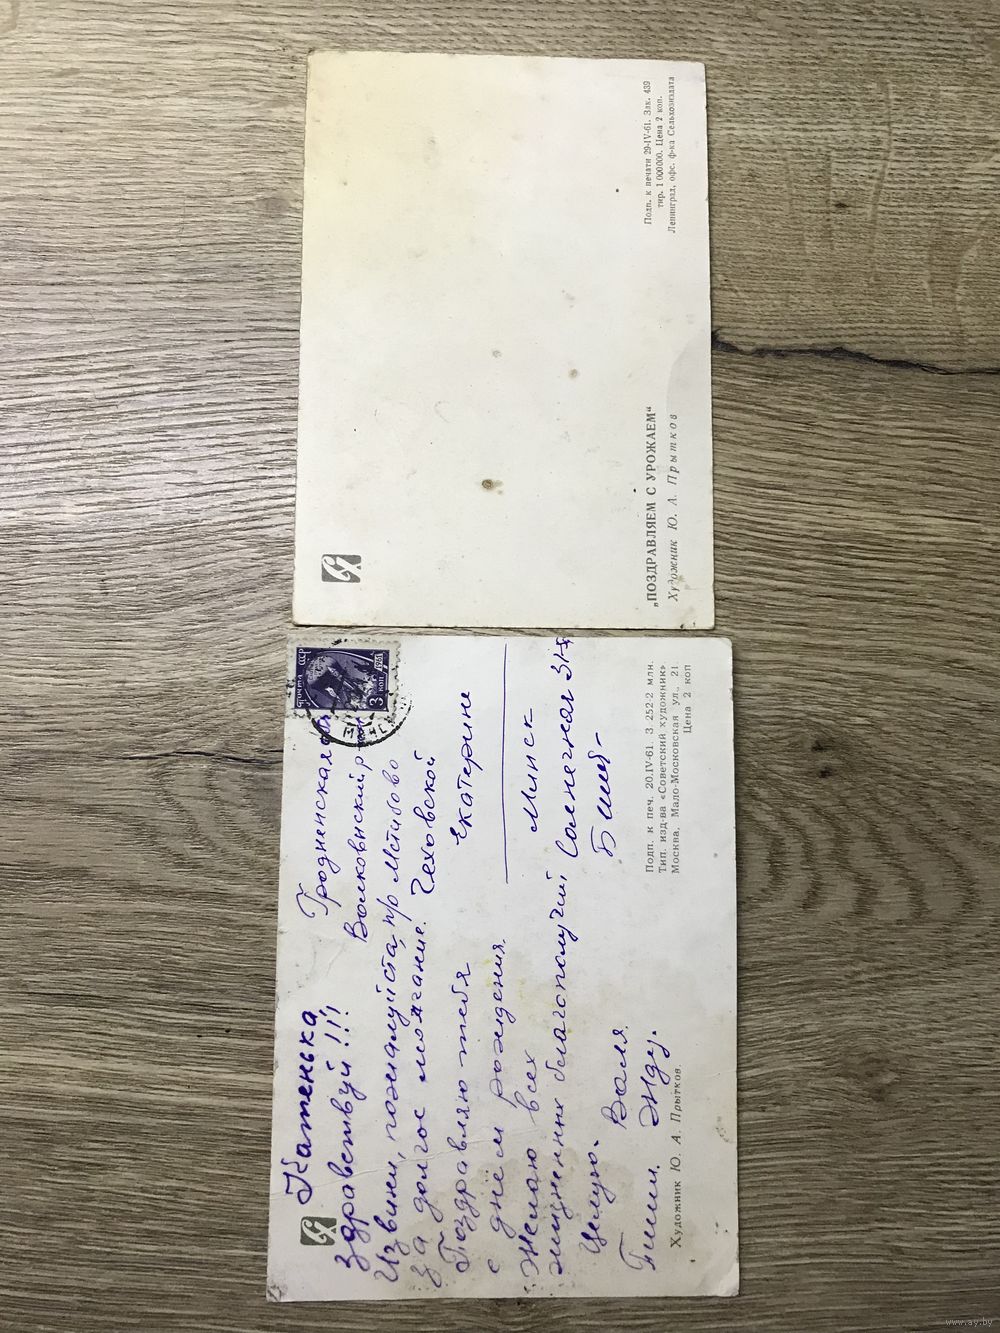 Подп. к печати 29-IV-61. Зак. 439
тир. 1 000 000. Цена 2 коп.
Ленинград, офс. ф-ка Сельхозиздата
„ПОЗДРАВЛЯЕМ С УРОЖАЕМ“
Художник Ю. А. Прытков
Катенька
здравствуй!!!
Извини, пожалуйста,
за долгое молчание.
Поздравляю тебя
с днем рождения.
Желаю всех
жизненных благополучий
Целую. Валя
Пиши. Жду.
ПОЧТА СССР
1961
3 КОП
Гродненская
Волковыский р-н
п/о Мстибово
Чеховской
Екатерине
Минск
Солнечная
Подп. к печ. 20.IV-61. З. 252. 2 млн.
Тип. изд-ва «Советский художник»
Москва, Мало-Московская ул., 21
Цена 2 коп
Художник Ю. А. Прытков.
www.ay.by